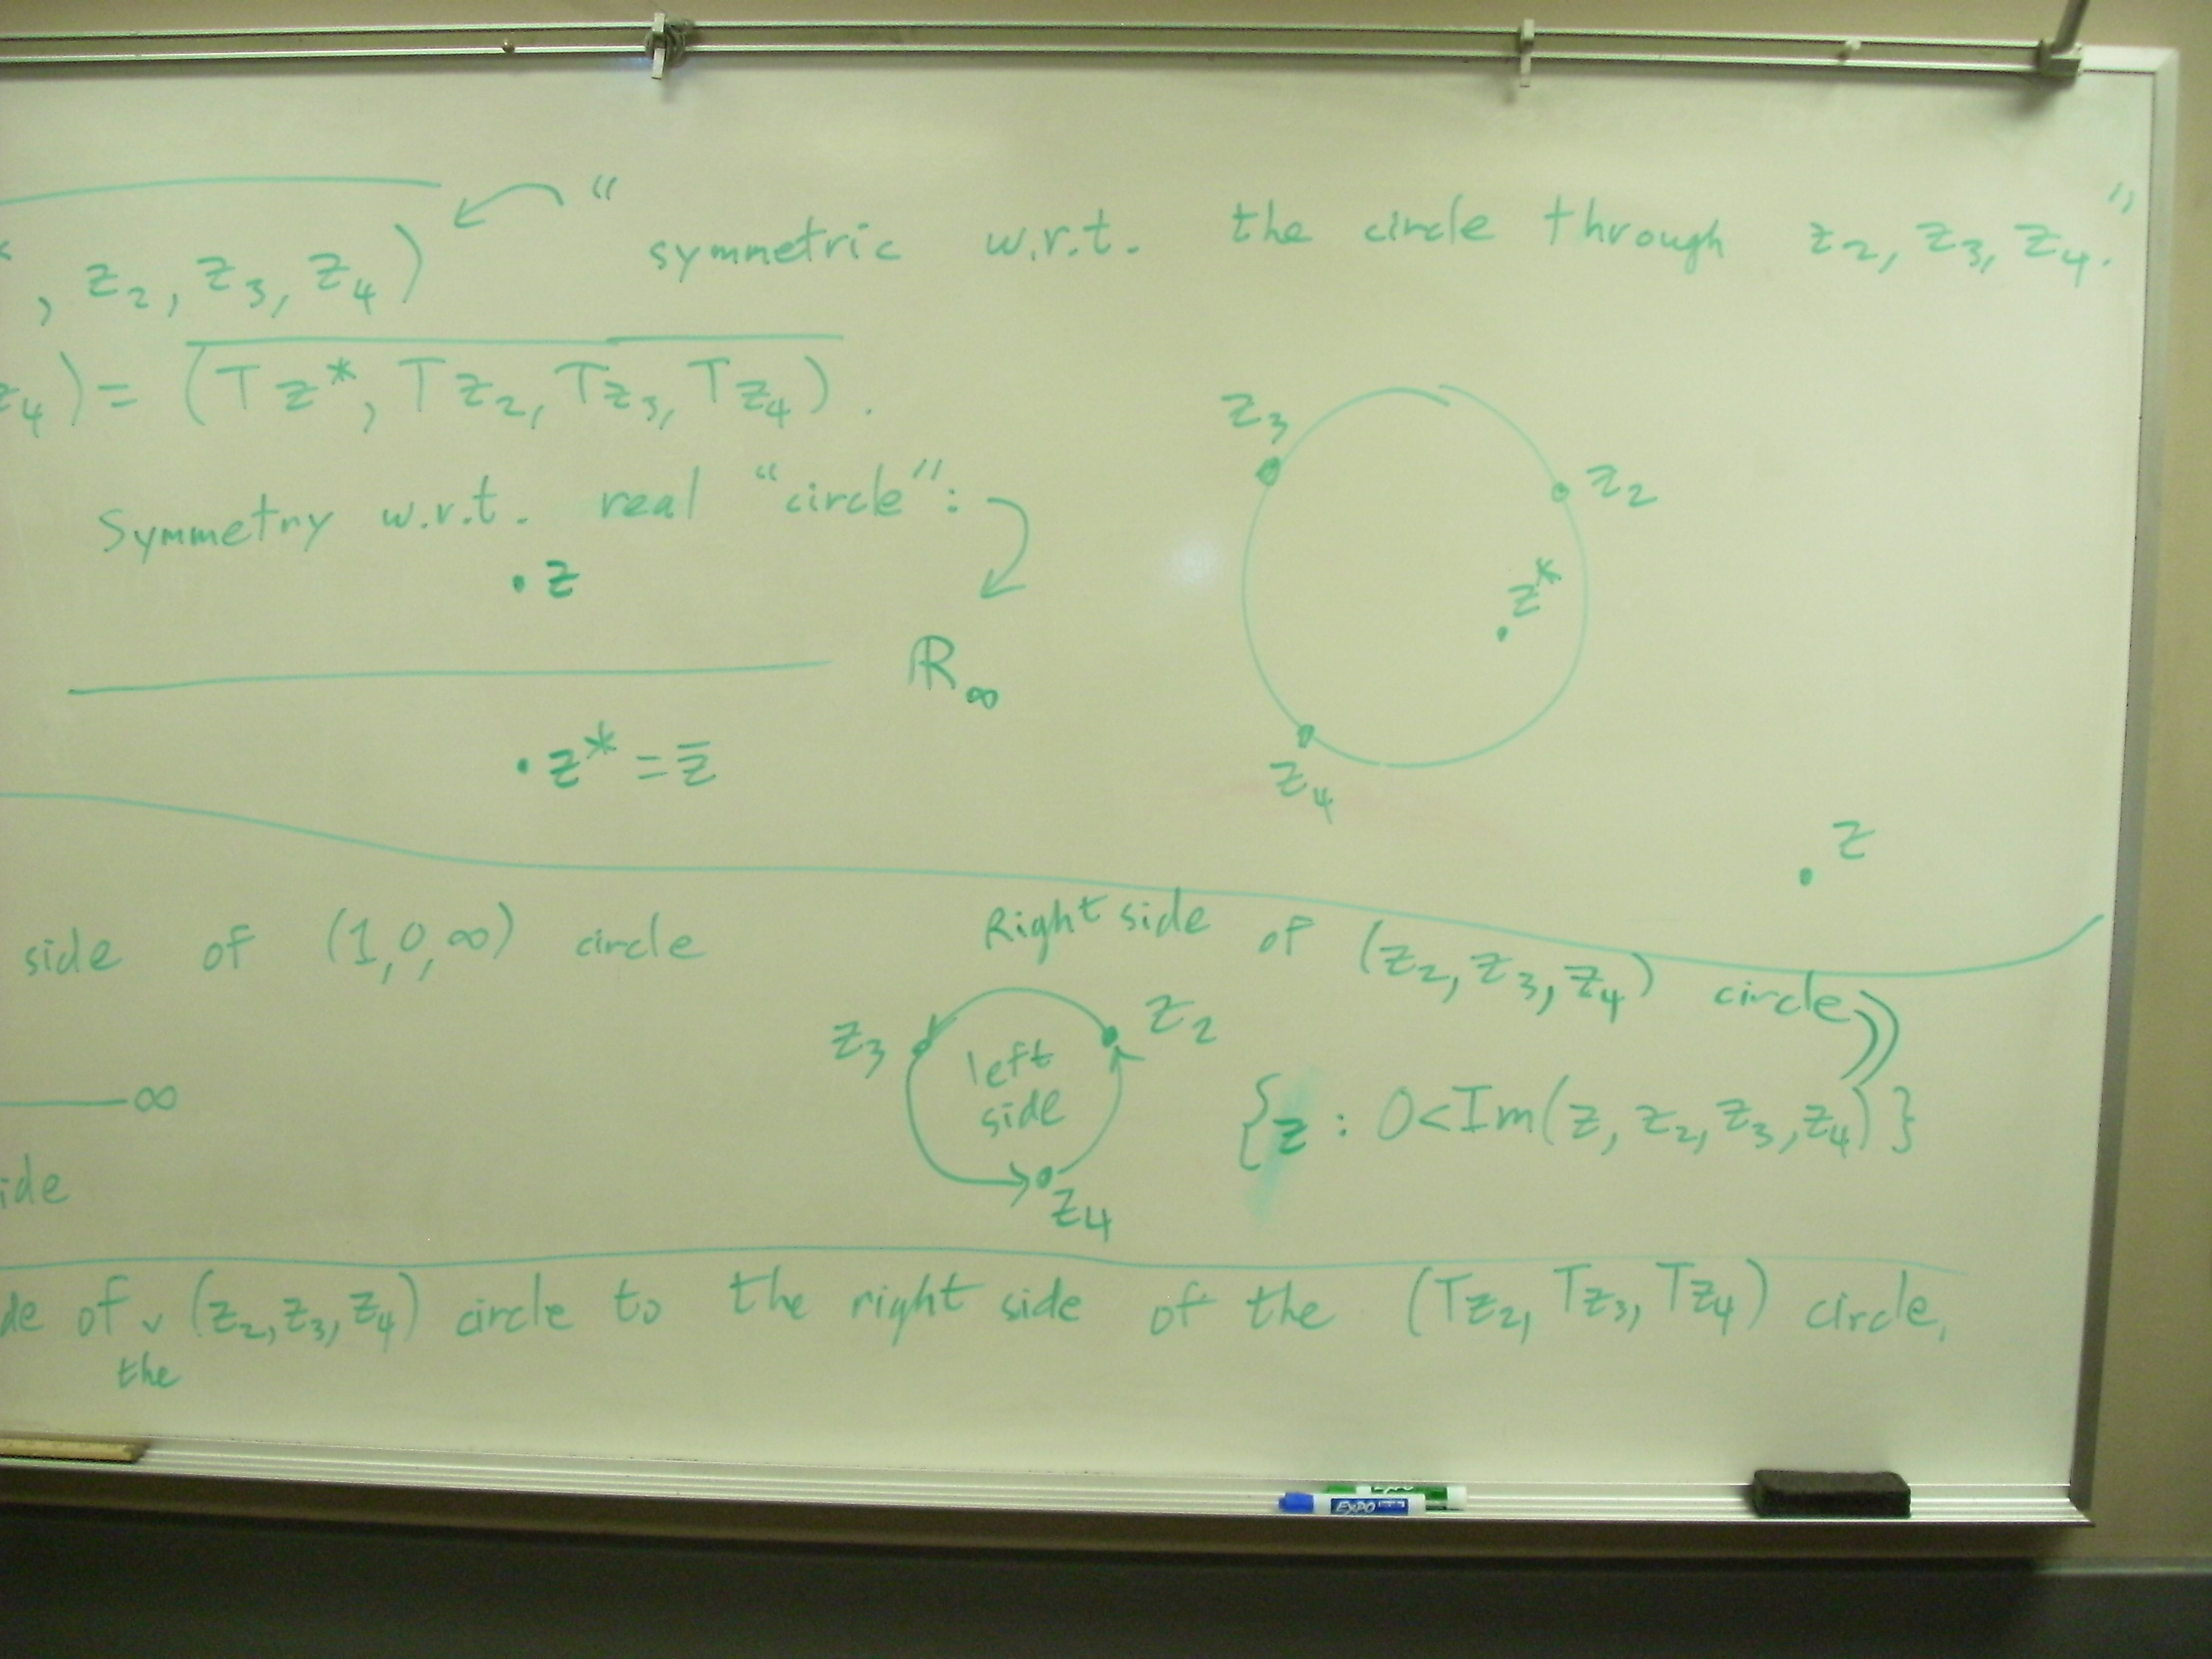 “ symmetric w.r.t. the circle through z₂, z₃, z₄. ”
, z₂, z₃, z₄)
z₄) = (Tz*, Tz₂, Tz₃, Tz₄).
z₃
z₂
z*
z₄
z
Symmetry w.r.t. real “circle”:
z
ℝ∞
z* = z̅
side of (1,0,∞) circle
Right side of (z₂, z₃, z₄) circle
z₃
z₂
left
side
z₄
{z : 0<Im(z, z₂, z₃, z₄)}
∞
ide
de of the (z₂, z₃, z₄) circle to the right side of the (Tz₂, Tz₃, Tz₄) circle.
EXPO